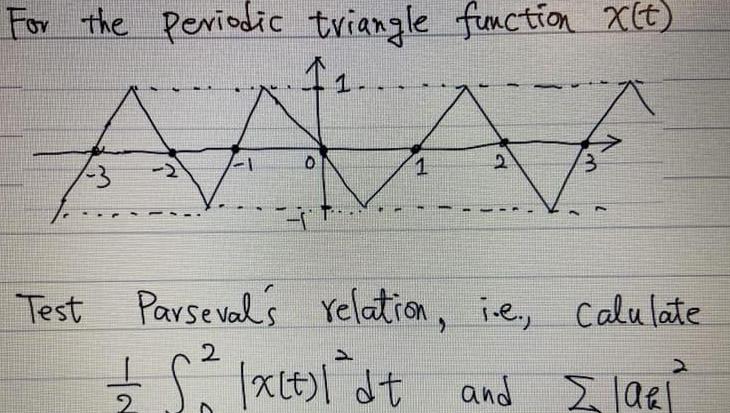 For the periodic triangle function x(t)
1
-3 -2 -1 0 1 2 3
-1
Test Parseval's relation, i.e., calulate
1/2 ∫₀² |x(t)|² dt and Σ |aₖ|²